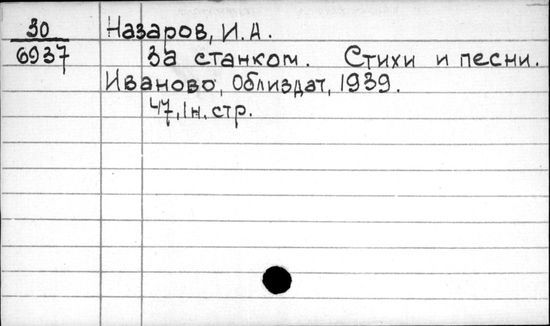 30
6937
Назаров, И.А.
За станком. Стихи и песни.
Иваново, Облиздат, 1939.
47, 1н. стр.